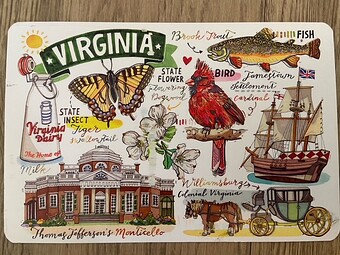 VIRGINIA
Brook Trout
FISH
STATE
FLOWER
Flowering
Dogwood
BIRD
Cardinal
Jamestown
Settlement
STATE
INSECT
Tiger
Swallowtail
Virginia
Dairy
The Home of
Milk
Williamsburg
Colonial Virginia
Thomas Jefferson's Monticello